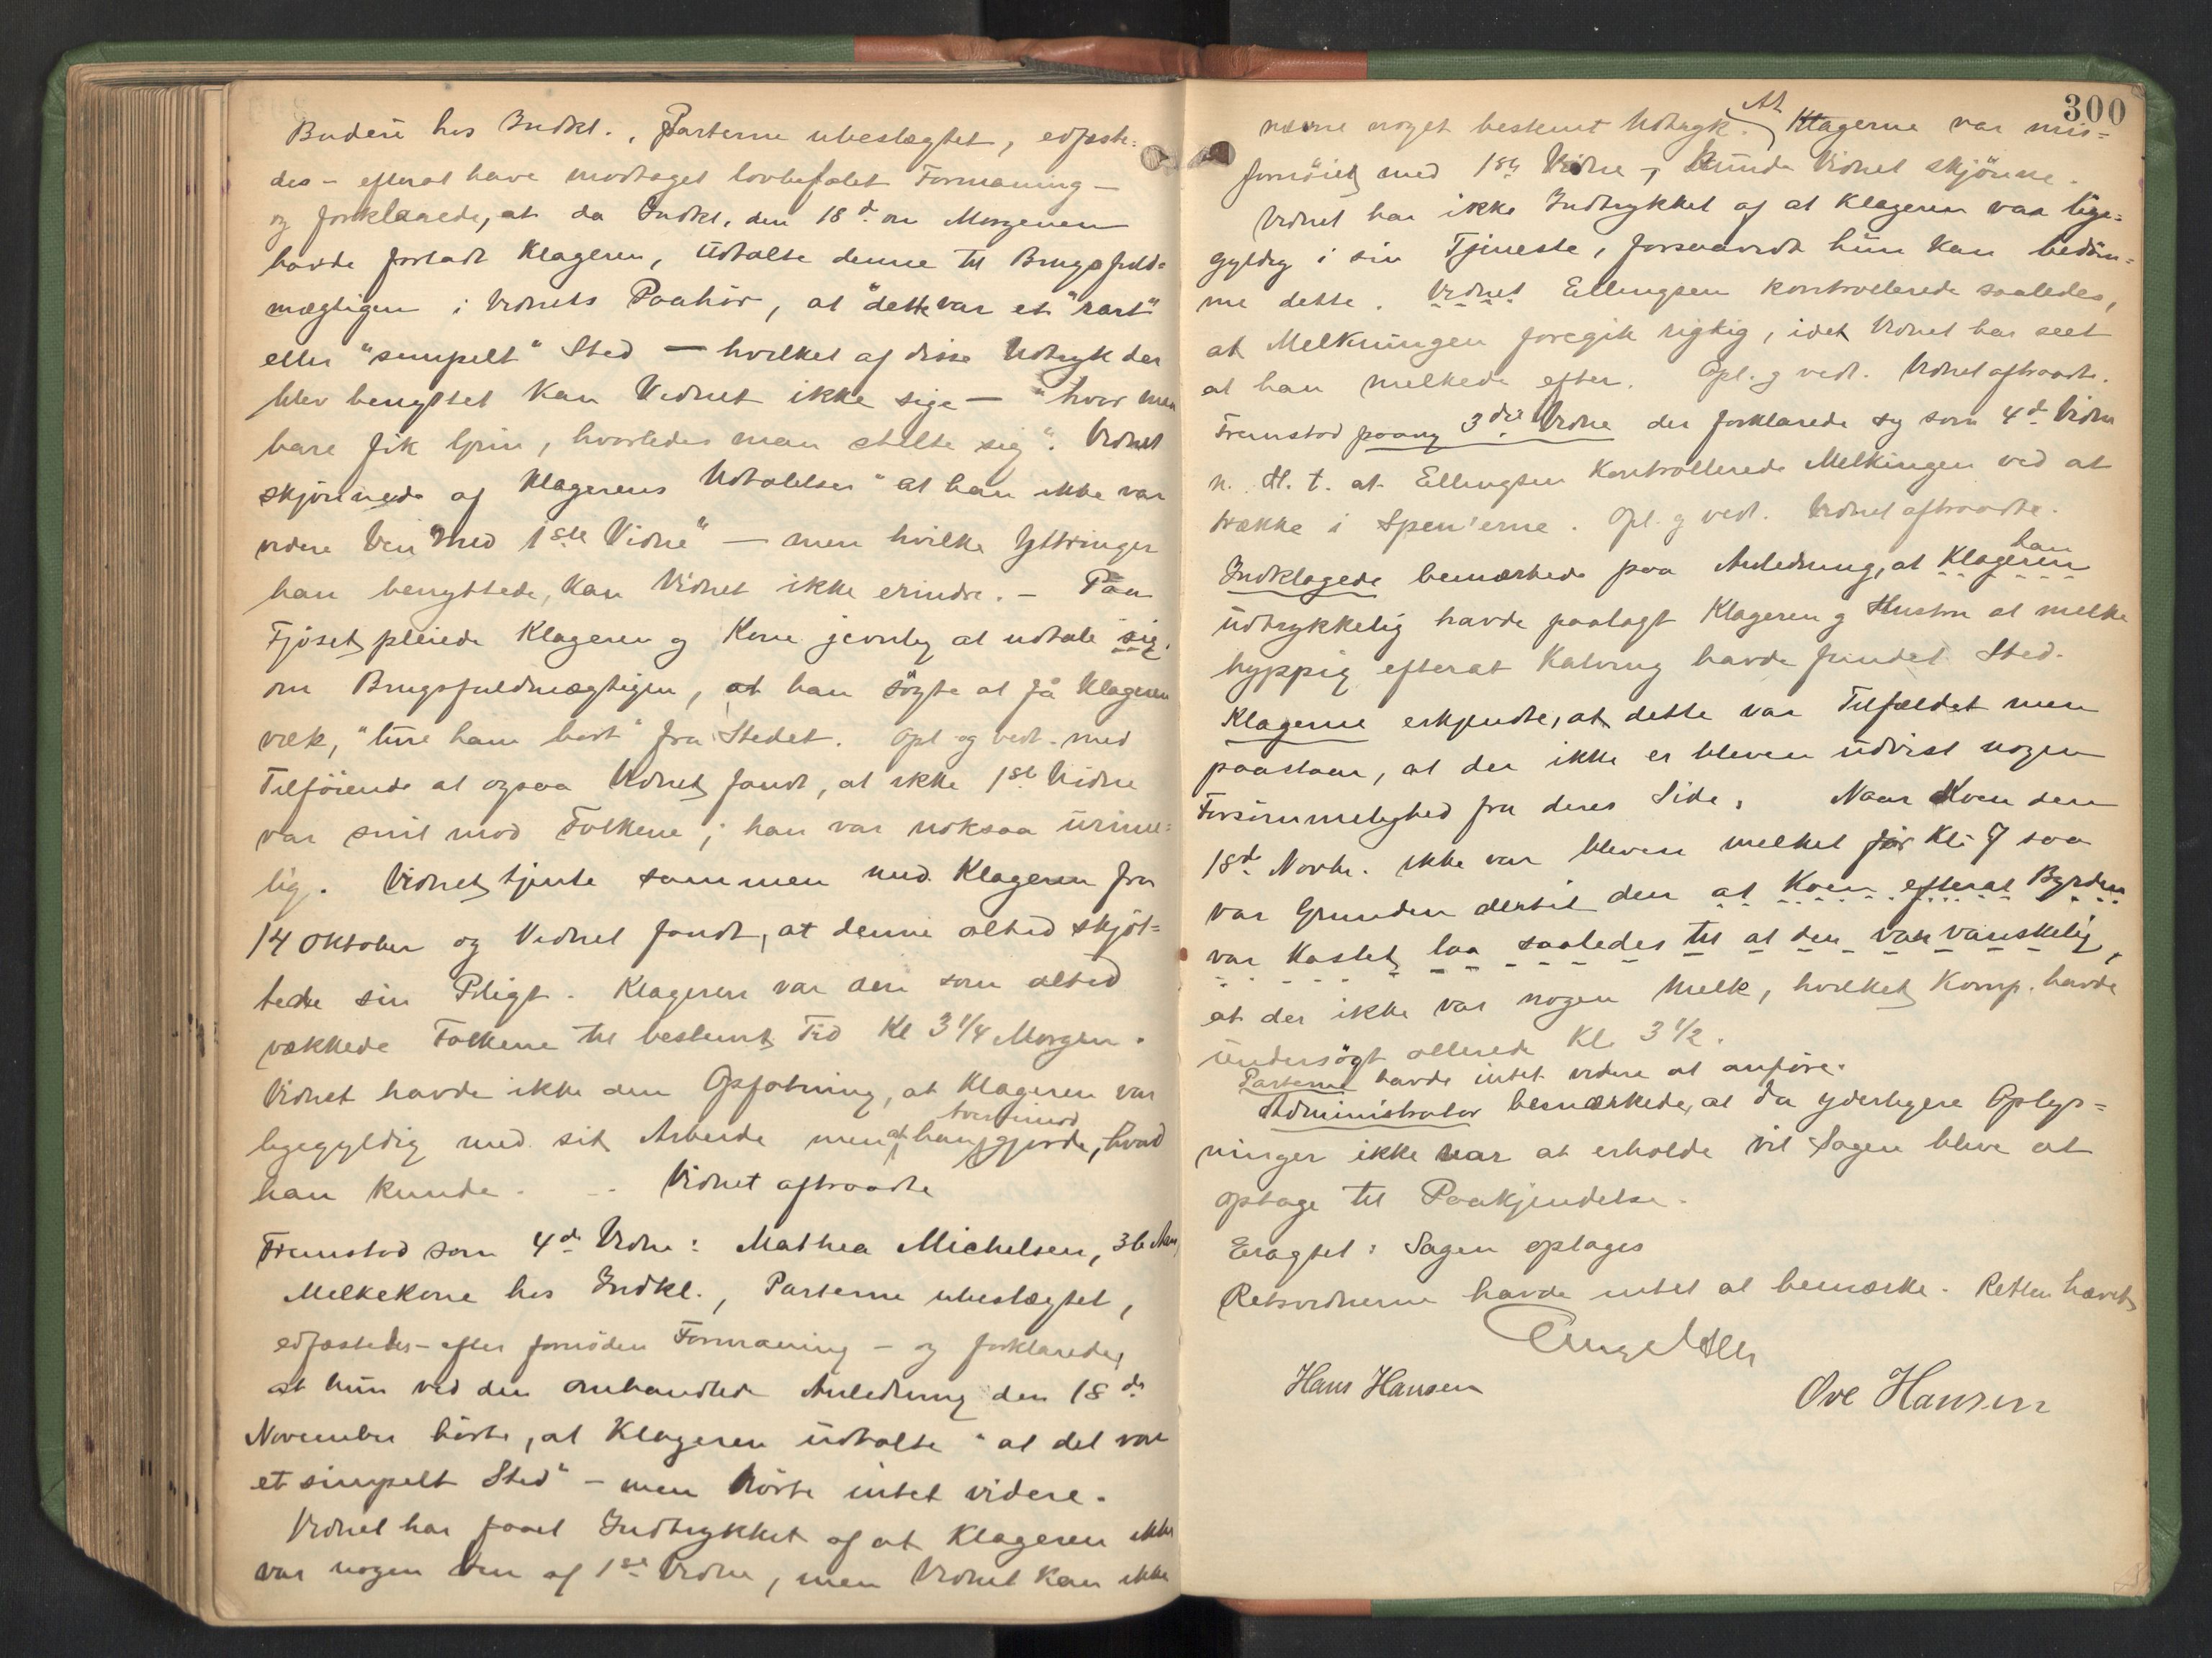 Budeie hos Indkl., Parterne ubeslægtet, edfæste=
des - efterat have modtaget lovbefalet Formaning -
og forklarede, at da Indkl. den 18d. om Morgenen
havde forladt Klageren, udtalte denne til Brugsfuld=
mægtigen i Vidnets Paahör, at "dette var et "rart"
eller "simpelt" Sted — hvilket af disse Udtryk der
blev benyttet kan Vidnet ikke sige — "hvor man
bare fik Grin, hvorledes man stelte sig". Vidnet
skjönnede af Klagerens Udtalelser "at han ikke var
videre Ven med 1ste Vidne" — men hvilke Yttringer
han benyttede, kan Vidnet ikke erindre. - Paa
Fjöset pleiede Klageren og Kone jevnlig at udtale sig
om Brugsfuldmægtigen, at han sögte at få Klageren
væk, "lure ham bort" fra Stedet. Opl. og vedt. med
Tilföiende at ogsaa Vidnet fandt, at ikke 1ste Vidne
var snil mod Folkene; han var noksaa urime=
lig. Vidnet tjente sammen med Klageren fra
14 Oktober og Vidnet fandt, at denne altid skjöt=
tede sin Pligt. Klageren var den som altid
vækkede Folkene til bestemt Tid Kl 3 1/4 Morgen.
Vidnet havde ikke den Opfatning, at Klageren var
ligegyldig med sit Arbeide men at han tvertimod gjorde, hvad
han kunde. - Vidnet aftraadte
Fremstod som 4de Vidne: Mathea Michelsen, 36 Aar,
Melkekone hos Indkl., Parterne ubeslægtet,
edfæstedes - efter fornöden Formaning - og forklarede,
at hun ved den omhandlede Anledning den 18de
November hörte, at Klageren udtalte "at det var
et simpelt Sted" - men hörte intet videre.
Vidnet har faaet Indtrykket af at Klageren ikke
var nogen Ven af 1ste Vidne, men Vidnet kan ikke
300
nævne noget bestemt Udtryk. At Klagerne var mis=
fornöiet med 1ste Vidne, kunde Vidnet skjönne.
Vidnet har ikke Indtrykket af at Klageren var lige=
gyldig i sin Tjeneste, forsaavidt hun kan bedöm=
me dette. Vidnet Ellingsen kontrollerede saaledes,
at Melkningen foregik rigtig, idet Vidnet har seet
at han melkede efter. Opl. g vedt. Vidnet aftraadte.
Fremstod paany 3die Vidne der forklarede sig som 4de Vidne
n. H. t. at Ellingsen kontrollerede Melkingen ved at
trække i Spen'erne. Opl. g vedt. Vidnet aftraadte.
Indklagede bemærkede paa Anledning, at Klageren han
udtrykkelig havde paalagt Klageren g Hustru at melke
hyppig efterat Kalving havde fundet Sted.
Klagerne erkjendte, at dette var Tilfældet men
paastaar, at der ikke er bleven udvist nogen
Forsömmelighed fra deres Side. Naar Koen den
18de Novbr. ikke var bleven melket för Kl. 7 saa
var Grunden dertil den at Koen efterat Byrden
var kastet laa saaledes til at den var vanskelig,
at der ikke var nogen Melk, hvilket Komp. havde
undersögt allerede Kl. 3 1/2.
Parterne havde intet videre at anföre.
Administrator bemærkede, at da yderligere Oplys=
ninger ikke var at erholde vil Sagen blive at
optage til Paakjendelse.
Eragtet: Sagen optages
Retsvidnerne havde intet at bemærke. Retten hævet
Hans Hansen
Ove Hansen